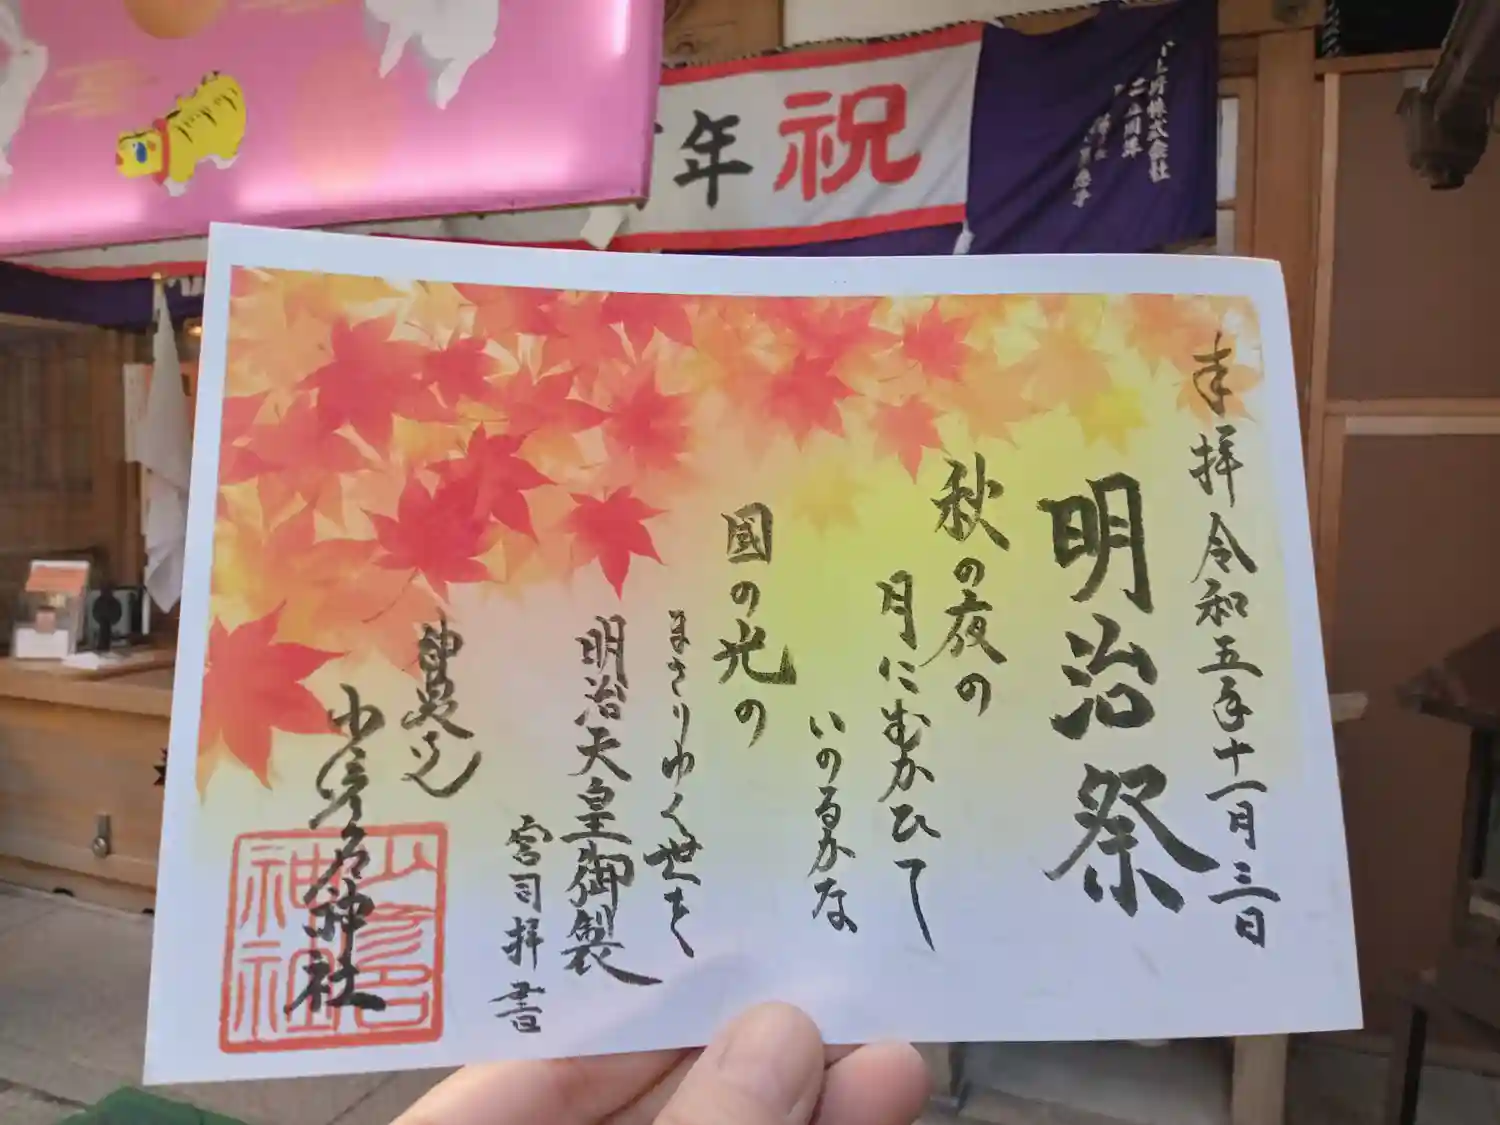 祝
年
株式会社
奉拝 令和五年十一月三日
明治祭
秋の夜の
月にむかひて
いのるかな
國の光の
まさりゆく世を
明治天皇御製
宮司拝書
神農さん
少彦名神社